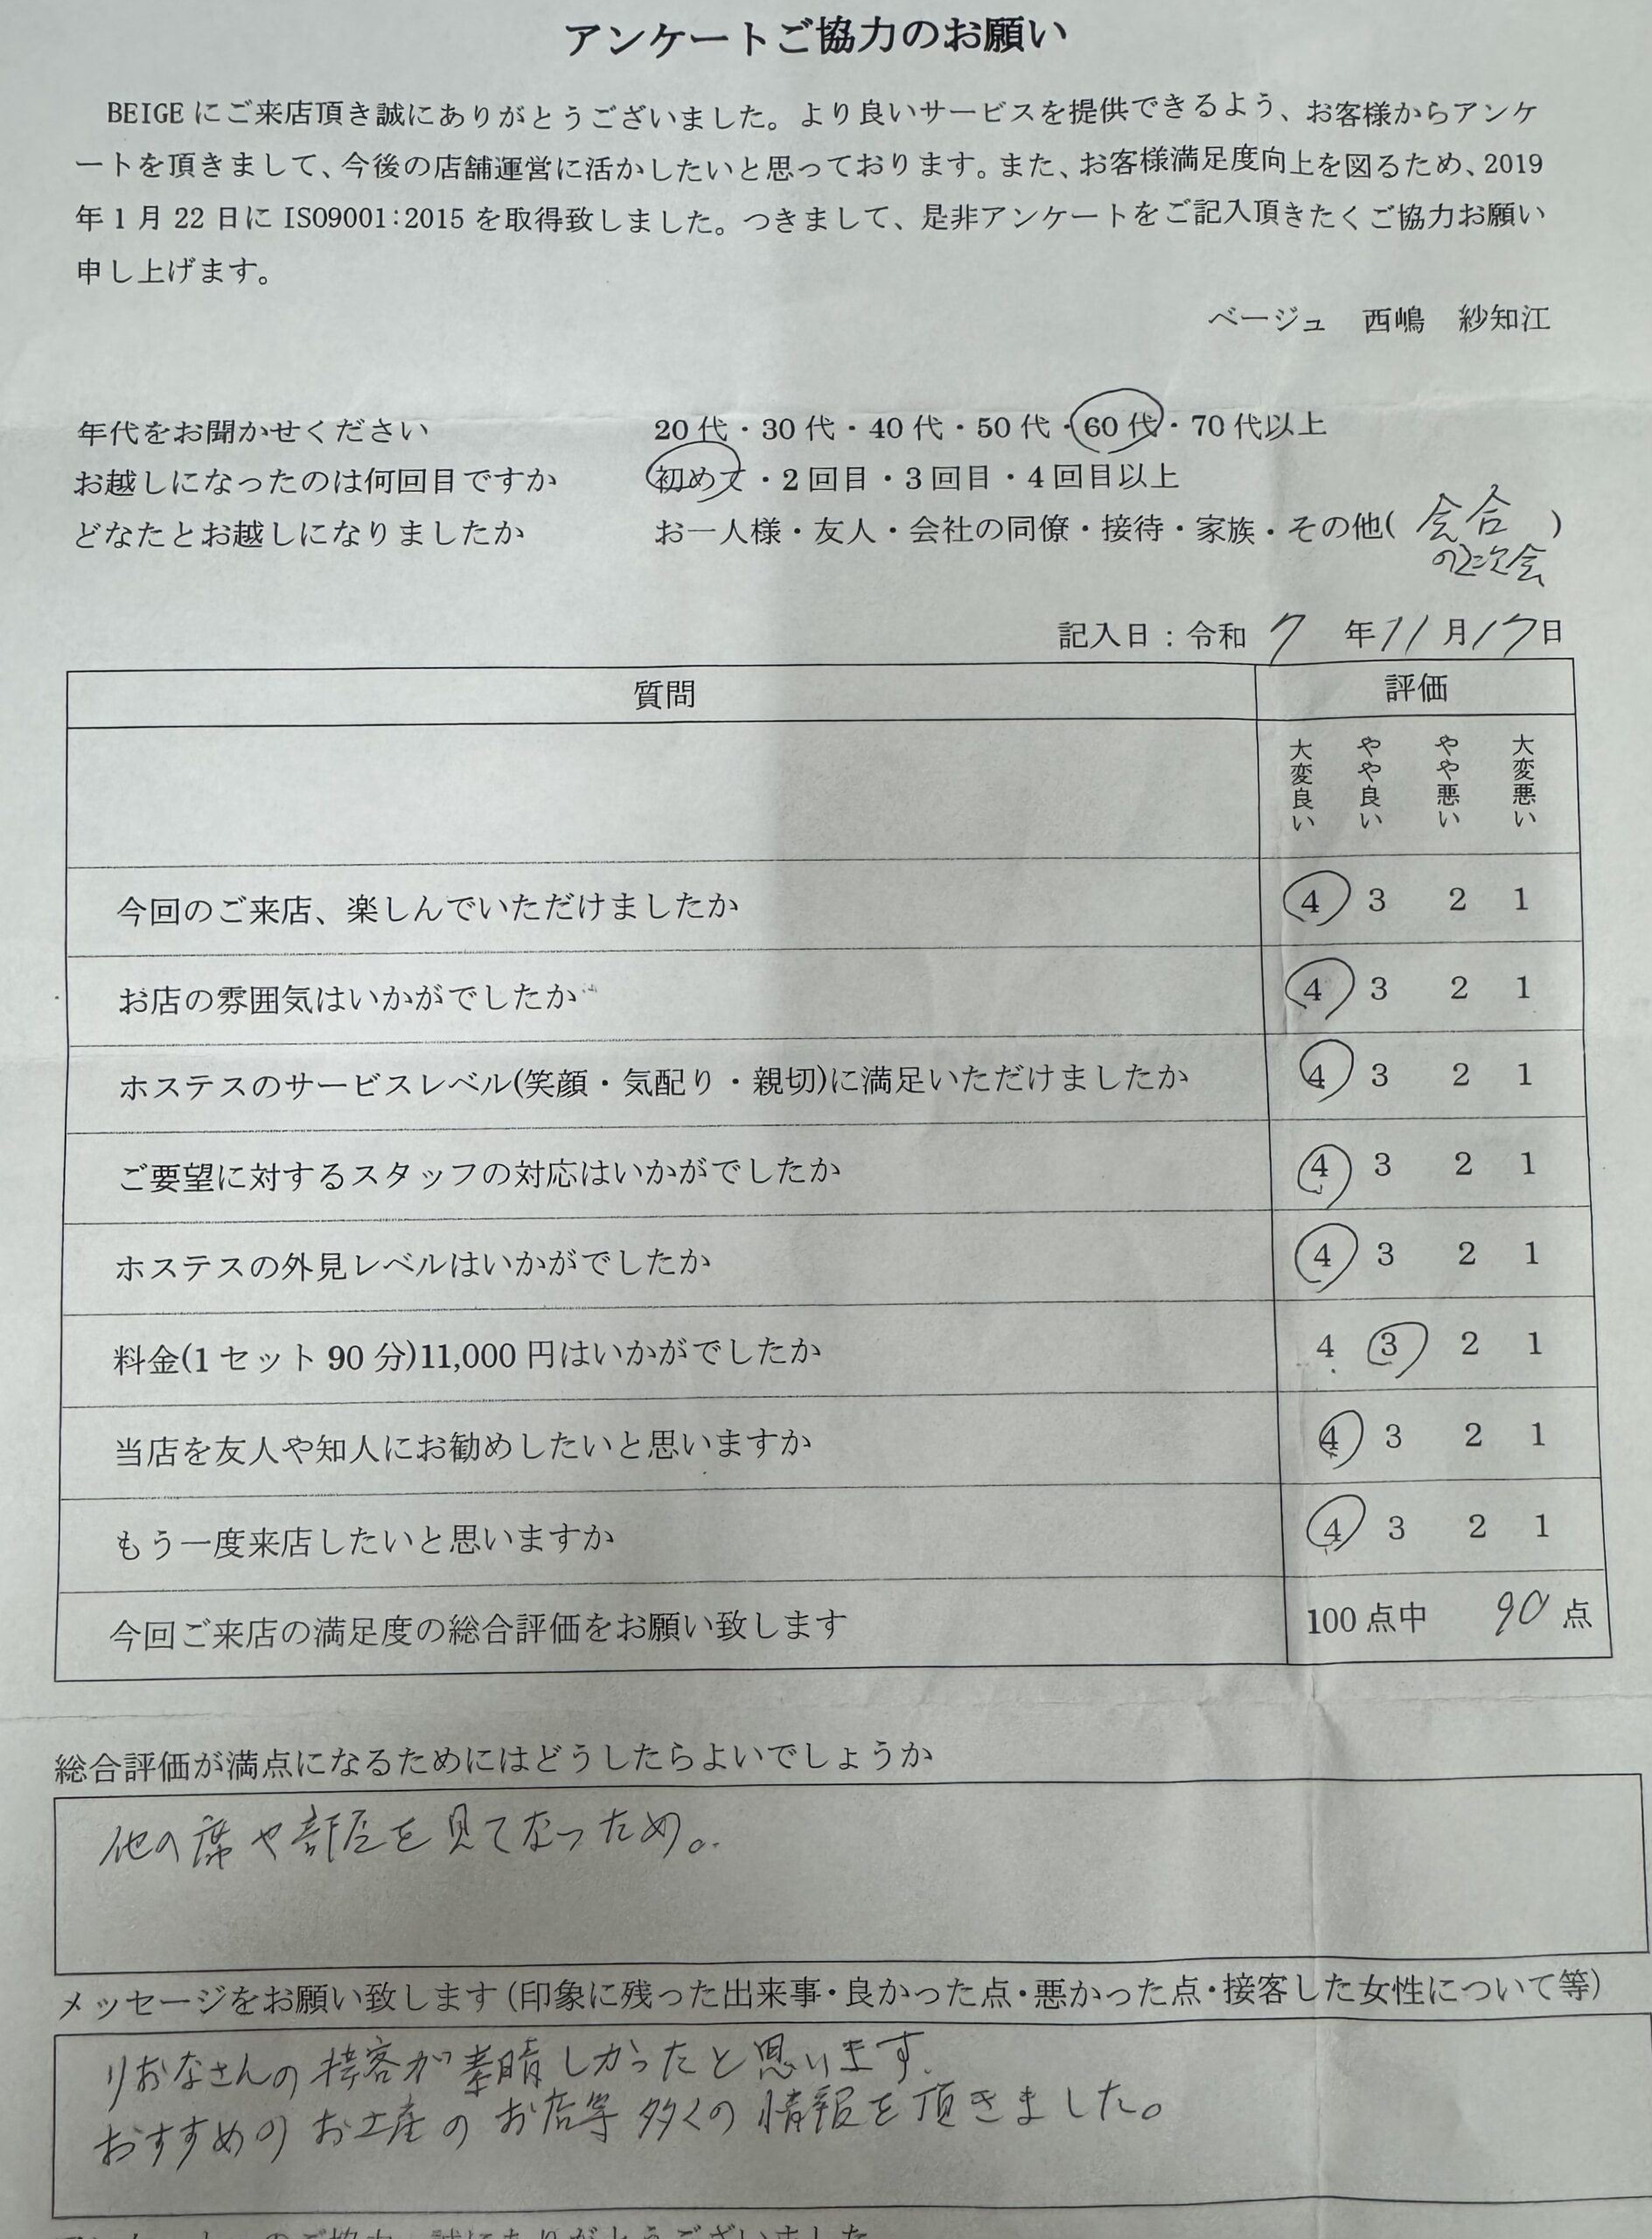 アンケートご協力のお願い
BEIGEにご来店頂き誠にありがとうございました。より良いサービスを提供できるよう、お客様からアンケ
ートを頂きまして、今後の店舗運営に活かしたいと思っております。また、お客様満足度向上を図るため、2019
年1月22日にISO9001:2015を取得致しました。つきまして、是非アンケートをご記入頂きたくご協力お願い
申し上げます。
ベージュ 西嶋 紗知江
年代をお聞かせください 20代・30代・40代・50代・60代・70代以上
お越しになったのは何回目ですか 初めて・2回目・3回目・4回目以上
どなたとお越しになりましたか お一人様・友人・会社の同僚・接待・家族・その他( 会合 )
の2次会
記入日：令和 7 年 11 月 17 日
質問 評価
大変良い やや良い やや悪い 大変悪い
今回のご来店、楽しんでいただけましたか 4 3 2 1
お店の雰囲気はいかがでしたか 4 3 2 1
ホステスのサービスレベル(笑顔・気配り・親切)に満足いただけましたか 4 3 2 1
ご要望に対するスタッフの対応はいかがでしたか 4 3 2 1
ホステスの外見レベルはいかがでしたか 4 3 2 1
料金(1セット90分)11,000円はいかがでしたか 4 3 2 1
当店を友人や知人にお勧めしたいと思いますか 4 3 2 1
もう一度来店したいと思いますか 4 3 2 1
今回ご来店の満足度の総合評価をお願い致します 100点中 90 点
総合評価が満点になるためにはどうしたらよいでしょうか
他の席や部屋を見てなっため。
メッセージをお願い致します(印象に残った出来事・良かった点・悪かった点・接客した女性について等)
りおなさんの接客が素晴しかったと思います。
おすすめのお土産のお店等多くの情報を頂きました。
のご協力、誠にありがとうございました